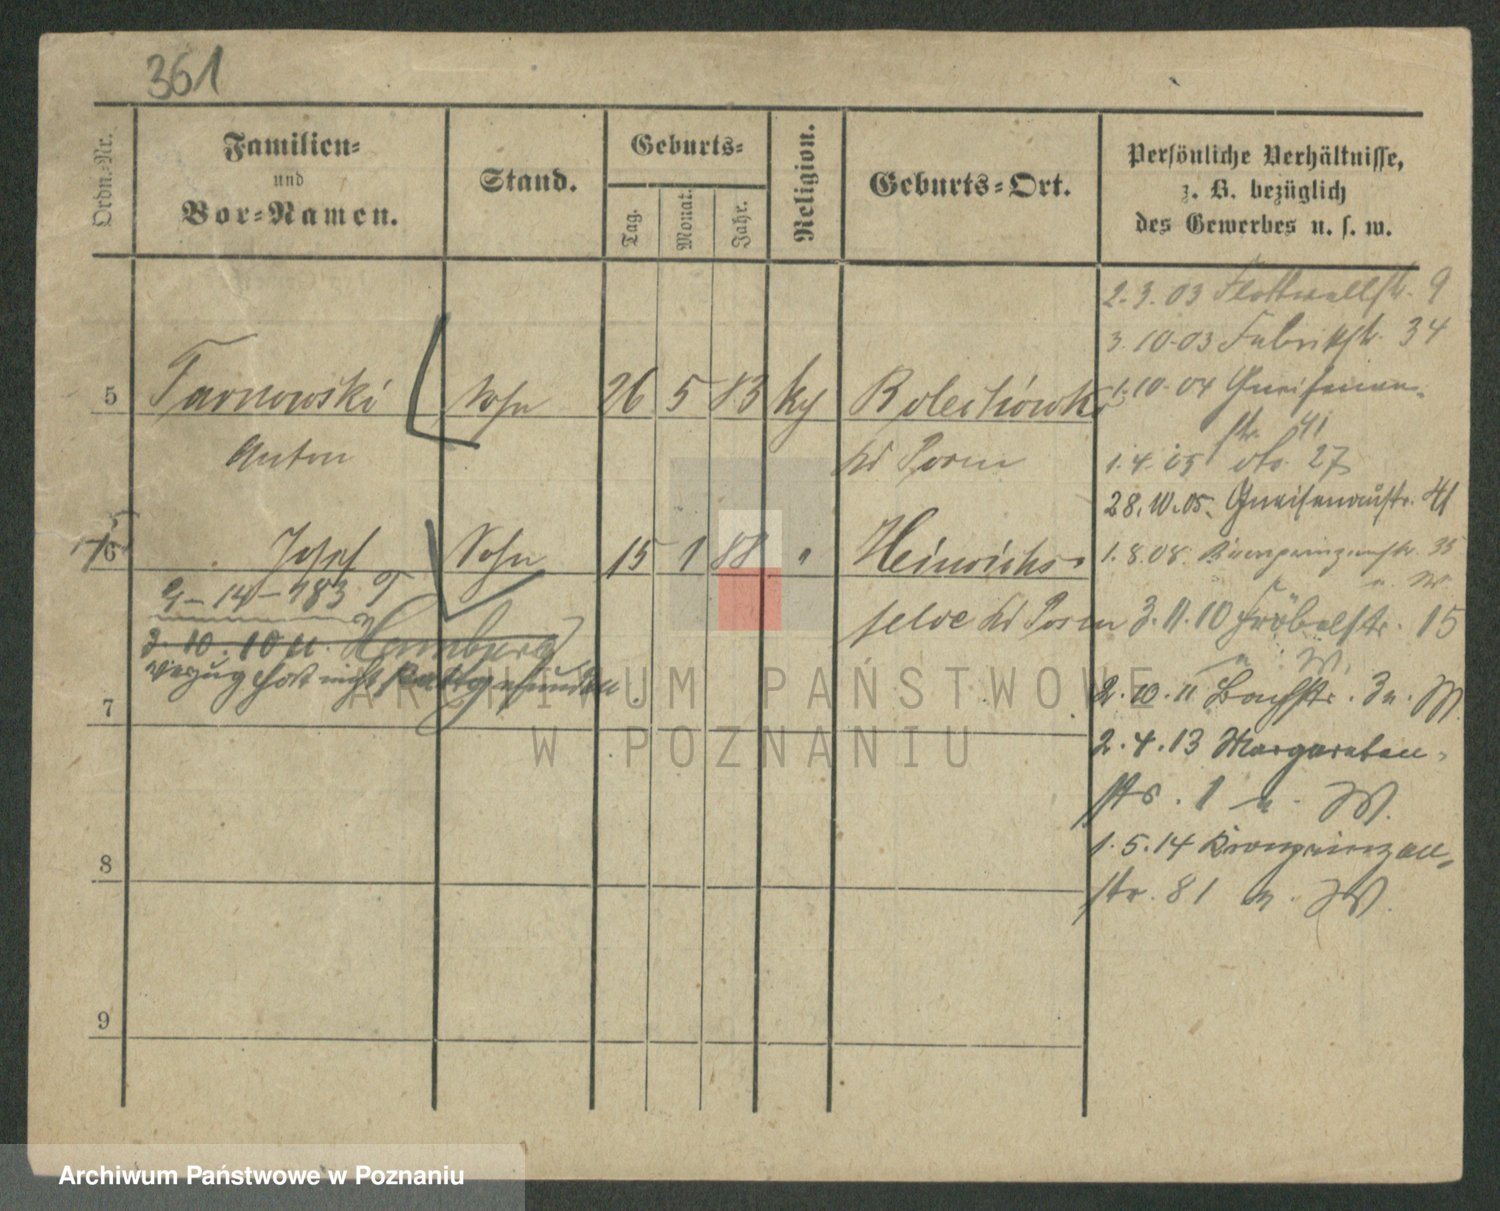 361
Ordn.-Nr.
Familien-
und
Vor-Namen.
Stand.
Geburts-
Tag.
Monat.
Jahr.
Religion.
Geburts-Ort.
Persönliche Verhältnisse,
z. B. bezüglich
des Gewerbes u. s. w.
2.3.03 Flottwellstr. 9
3.10.03 Fabrikstr. 34
5 Tarnowski Sohn 26 5 83 Bolechowko
1.10.04 Gneisenau-
str. 41
Anton Kr Posen
1.4.05 dto. 27
28.10.05. Gneisenaustr. 41
6 Josef Sohn 15 1 88 " Heinrichs-
1.8.08. Kronprinzenstr. 35
u. W.
9-14-183
felde Kr Posen
3.11.10 Fröbelstr. 15
u. W.
3.10.10 n. Hamburg
Verzug hat nicht stattgefunden
2.10.11 Bachstr. 3 u. W.
7
2.4.13 Margareten-
str. 1 u. W.
1.5.14 Kronprinzen-
str. 81 u. W.
8
9
ARCHIWUM PAŃSTWOWE
W POZNANIU
Archiwum Państwowe w Poznaniu